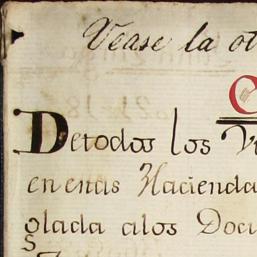 Véase la ot
De todos los V
en estas Hacienda
glada alos Docu